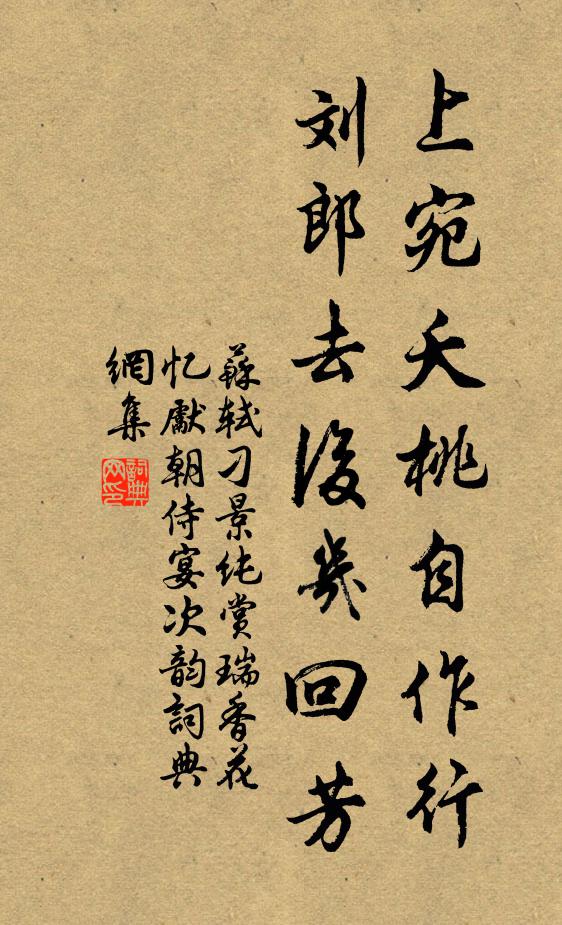 上宛夭桃自作行
刘郎去後幾回芳
蘇轼刁景纯赏瑞香花
忆獻朝侍宴次韵詞典
網集
詞典网印